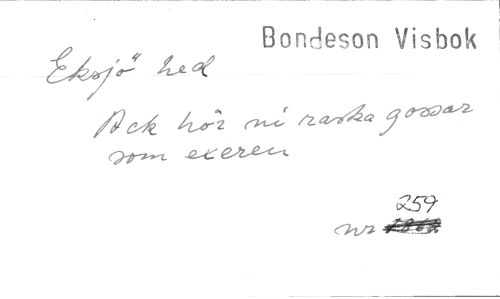 Bondeson Visbok
Eksjö hed
Ack hör ni raska gossar
som exeren
259
nr